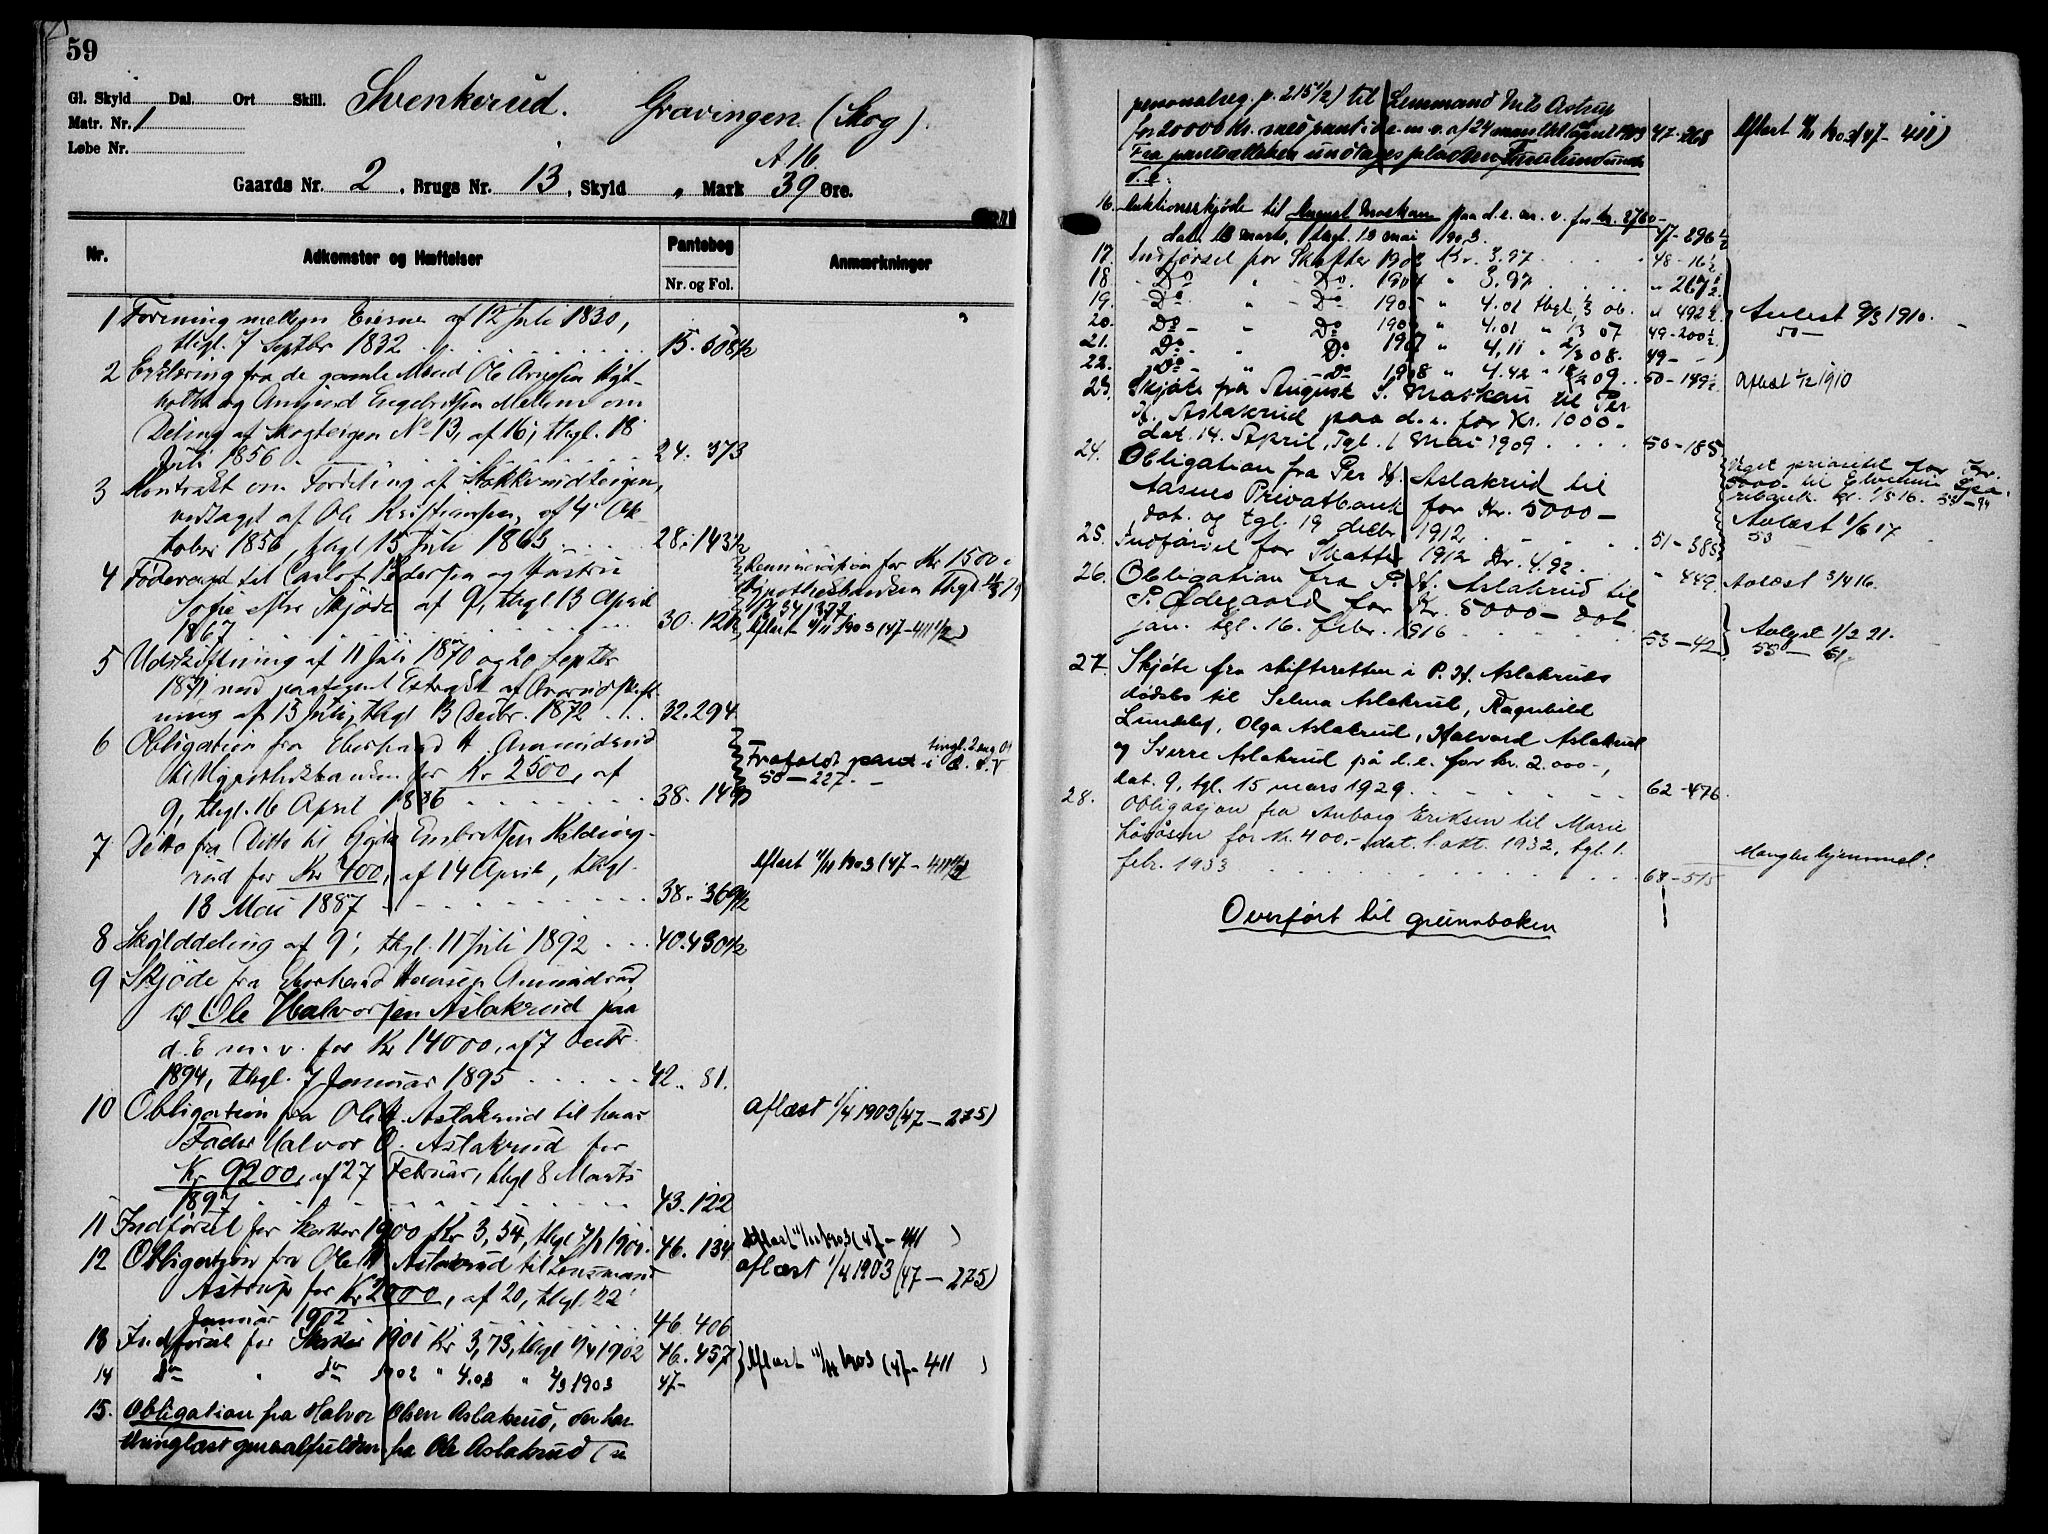 59
Gl. Skyld Dal. Ort Skill. Svenkerud. Gravingen (Skog).
Matr. Nr. 1
Løbe Nr.
A. 16
Gaards Nr. 2, Brugs Nr. 13, Skyld " Mark 39 Øre.
Nr. Adkomster og Hæftelser Pantebog Nr. og Fol. Anmærkninger
1 Forening mellem Eierne af 12 Juli 1830,
thgl. 7 Septbr 1832 15. 508½
2 Erklæring fra de gamle Mænd Ole
og Amund Engebretsen Mellem om
Deling af Skogteigen No 13, af 16, thgl. 18
Juli 1856 24. 373
3 Kontrakt om Fordeling af Stokkerudteigen,
vedtaget af Ole Kristiansen, af 4 Ok-
tober 1856, thgl 15 Juli 1863 28. 143½
4 Føderaad til Carl Pedersen og Hustru
Sofie efter Skjøde af 9, thgl. 13 April
1867 30. 12½
Renunciation for Kr 1500 i
Hypothekbanken thgl.
34/377
Aflæst 11/11 1903 (47-411½)
5 Udskiftning af 11 Juli 1870 og 20 Septbr
1871 med paategnet Extrakt af
ning af 15 Juli, thgl 13 Decbr. 1872 32. 294
6 Obligation fra Eberhard H. Amundrud
til Hypothekbanken for Kr 2500, af
9, thgl. 16 April 1886 38. 149
Frafaldt pant i d. e. tingl. 2 aug 09
50-227.
7 Ditto fra Ditto til Gyda Embretsen Kildeng-
rud for Kr 400, af 14 April, thgl.
13 Mai 1887 38. 369½
Aflæst 11/11 1903 (47-411½)
8 Skylddeling af 9, thgl. 11 Juli 1892 40. 430½
9 Skjøde fra Eberhard Hansen Amundrud
til Ole Halvorsen Aslakrud paa
d. E. m. v. for Kr 14000, af 7 Decbr.
1894, thgl. 7 Januar 1895 42. 81.
10 Obligation fra Ole H. Aslakrud til hans
Fader Halvor O. Aslakrud for
Kr 9200, af 27 Februar, thgl 8 Marts
1897 43. 122
aflæst 1/4 1903 (47-275)
11 Indførsel for Skatter 1900 Kr 3,54, thgl 1901. 46. 134 Aflæst 11/11 1903 (47-411)
12 Obligation fra Ole H. Aslakrud til Lensmand
Astrup for Kr 2000, af 20, thgl. 22
Januar 1902 46. 406
aflæst 1/4 1903 (47-275)
13 Indførsel for Skatter 1901 Kr 3,73, thgl 1/4 1902 46. 457
14 do " do 1902 " 4.03 " 2/3 1903 47-
Aflæst 11/11 1903 (47-411)
15. Obligation fra Halvor Olsen Aslakrud, der har
thinglæst generalfuldm. fra Ole Aslakrud (se
personalreg. p. 215½) til Lensmand Nils Astrup
for 20000 Kr. med pant i d. e. m. v. af 24 mars thgl. april 1903 47-268
Aflæst 11/11 1903 (47-411)
Fra panteretten undtages pladsen Furulund under
d. e.
16. Auktionsskjøde til August Moskau paa d. e. m. v. for kr. 2760-
dat. 13 marts, thgl. 19 mai 1903. 47-296½
17. Indførsel for Skatter 1903 Kr. 3.97 48-16½
18 - Do " - Do. 1904 " 3.97 " 267½
19. - Do " - Do 1905 " 4.01 thgl. 1/3 06. " 492½
20. Do - Do 1906 " 4.01 " 1/3 07 49-200½
21. Do - Do 1907 " 4,11 " 2/3 08. 49-
22. Do - " - Do 1908 " 4.42 " 09 50-149½
Avlæst 9/3 1910.
50-
23. Skjøte fra August S. Moskau til Per
H. Aslakrud paa d. e. for Kr. 1000-
dat. 14. April, Tgl. 1 Mai 1909 50-185
aflæst 1/12 1910
24. Obligation fra Per H. Aslakrud til
Aasnes Privatbank for Kr. 5000-
dat. og tgl. 19 decbr. 1912. 51-385
Veget prioritet for Kr.
5000- til Elverum Spa-
rebank tgl. 1/5 16. 53-94
Avlæst 1/6 17
53-
25. Indførsel for Skatter 1912 Kr. 4.92. " 449. Avlæst 3/4 16.
26. Obligation fra P. H. Aslakrud til
P. Ødegaard for Kr. 5000- dat.
jan. tgl. 16. febr. 1916 53-42
Avlyst 1/2 21.
55- 61
27. Skjøte fra skifteretten i P. H. Aslakruds
dødsbo til Selma Aslakrud, Ragnhild
Lundeby, Olga Aslakrud, Halvard Aslakrud
og Sverre Aslakrud på d. e. for kr. 2.000-,
dat. 9, tgl. 15 mars 1929. 62-476.
28. Obligasjon fra Anborg Eriksen til Marie
Låsåsen for Kr. 400,- dat. 1. okt. 1932, tgl. 1.
febr. 1933 63-515
Mangler hjemmel!
Overført til grunnboken